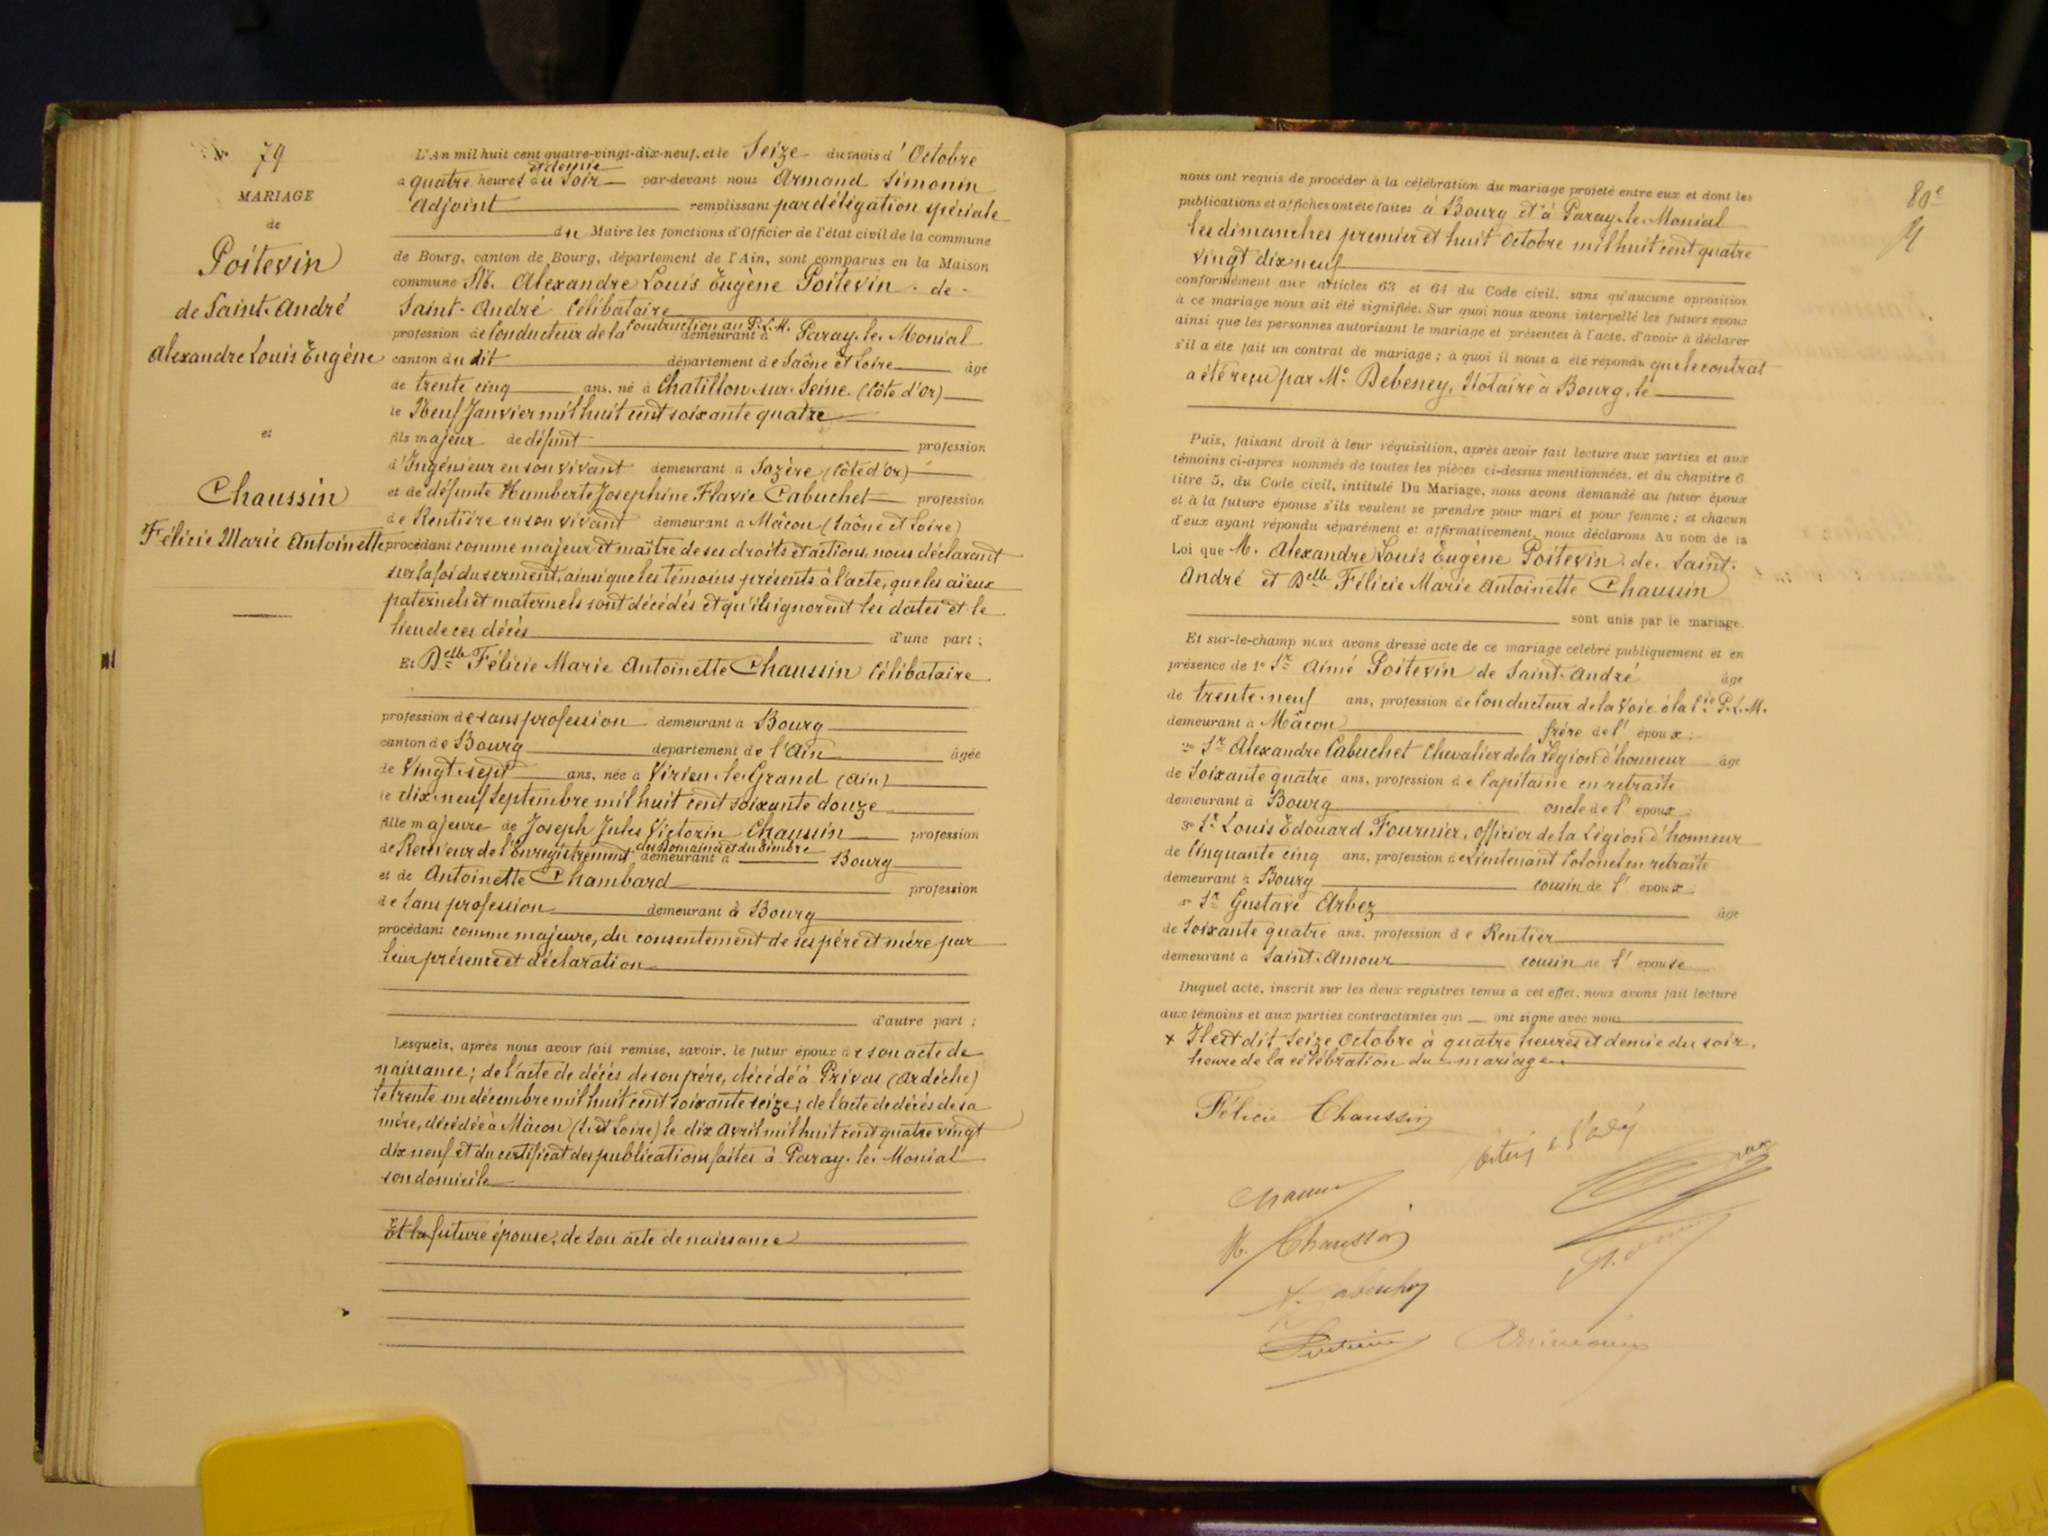 No 79
MARIAGE
de
Poitevin
de Saint-André
Alexandre Louis Eugène
et
Chaussin
Félicie Marie Antoinette
L'An mil huit cent quatre-vingt-dix-neuf, et le Seize du mois d'Octobre
à quatre heures et demie du Soir par-devant nous Armand Simonin
Adjoint remplissant par délégation spéciale
du Maire les fonctions d'Officier de l'état civil de la commune
de Bourg, canton de Bourg, département de l'Ain, sont comparus en la Maison
commune M. Alexandre Louis Eugène Poitevin de
Saint-André Célibataire
profession de Conducteur de la Construction au P.L.M. demeurant à Paray-le-Monial
canton du dit département de Saône et Loire âgé
de trente cinq ans, né à Chatillon-sur-Seine (Côte d'Or)
le Neuf Janvier mil huit cent soixante quatre
fils majeur de défunt profession
d'Ingénieur en son vivant demeurant à (Côte d'Or)
et de défunte Humberte Josephine Flavie Cabuchet profession
de Rentière en son vivant demeurant à Mâcon (Saône et Loire)
procédant comme majeur et maître de ses droits et actions, nous déclarant
sur la foi du serment, ainsi que les témoins présents à l'acte, que les aïeux
paternels et maternels sont décédés et qu'ils ignorent les dates et le
lieu de ces décès d'une part ;
Et Delle Félicie Marie Antoinette Chaussin Célibataire
profession de sans profession demeurant à Bourg
canton de Bourg département de l'Ain âgée
de Vingt-sept ans, née à Virieu-le-Grand (Ain)
le dix-neuf Septembre mil huit cent soixante douze
fille majeure de Joseph Jules Victorin Chaussin profession
de Receveur de l'Enregistrement du Domaine et du Timbre demeurant à Bourg
et de Antoinette Chambard profession
de Sans profession demeurant à Bourg
procédant comme majeure, du consentement de ses père et mère par
leur présence et déclaration
d'autre part ;
Lesquels, après nous avoir fait remise, savoir, le futur époux de son acte de
naissance ; de l'acte de décès de son père, décédé à Privas (Ardèche)
le trente un décembre mil huit cent soixante seize ; de l'acte de décès de sa
mère, décédée à Mâcon (S. et Loire) le dix Avril mil huit cent quatre vingt
dix neuf et du certificat des publications faites à Paray-le-Monial
son domicile
Et la future épouse, de son acte de naissance
80e
nous ont requis de procéder à la célébration du mariage projeté entre eux et dont les
publications et affiches ont été faites à Bourg et à Paray-le-Monial
les dimanches premier et huit Octobre mil huit cent quatre
vingt dix neuf
conformément aux articles 63 et 64 du Code civil, sans qu'aucune opposition
à ce mariage nous ait été signifiée. Sur quoi nous avons interpellé les futurs époux
ainsi que les personnes autorisant le mariage et présentes à l'acte, d'avoir à déclarer
s'il a été fait un contrat de mariage ; à quoi il nous a été répondu que le contrat
a été reçu par Me Debeney, Notaire à Bourg, le
Puis, faisant droit à leur réquisition, après avoir fait lecture aux parties et aux
témoins ci-après nommés de toutes les pièces ci-dessus mentionnées, et du chapitre 6
titre 5, du Code civil, intitulé Du Mariage, nous avons demandé au futur époux
et à la future épouse s'ils veulent se prendre pour mari et pour femme ; et chacun
d'eux ayant répondu séparément et affirmativement, nous déclarons Au nom de la
Loi que M. Alexandre Louis Eugène Poitevin de Saint-
André et Delle Félicie Marie Antoinette Chaussin
sont unis par le mariage.
Et sur-le-champ nous avons dressé acte de ce mariage célébré publiquement et en
présence de 1o Sr Aimé Poitevin de Saint-André âgé
de trente-neuf ans, profession de Conducteur de la Voie à la Cie P.L.M.
demeurant à Mâcon frère de l'époux ;
2o Sr Alexandre Cabuchet Chevalier de la Légion d'honneur âgé
de Soixante quatre ans, profession de Capitaine en retraite
demeurant à Bourg oncle de l'époux ;
3o Sr Louis Edouard Fournier, Officier de la Légion d'honneur
de Cinquante cinq ans, profession de Lieutenant Colonel en retraite
demeurant à Bourg cousin de l'époux ;
Sr Gustave Arbez âgé
de Soixante quatre ans, profession de Rentier
demeurant à Saint-Amour cousin de l'épouse
Duquel acte, inscrit sur les deux registres tenus à cet effet, nous avons fait lecture
aux témoins et aux parties contractantes qui ont signé avec nous
x Il est dit Seize Octobre à quatre heures et demie du soir,
heure de la célébration du mariage.
Félicie Chaussin
Chaussin